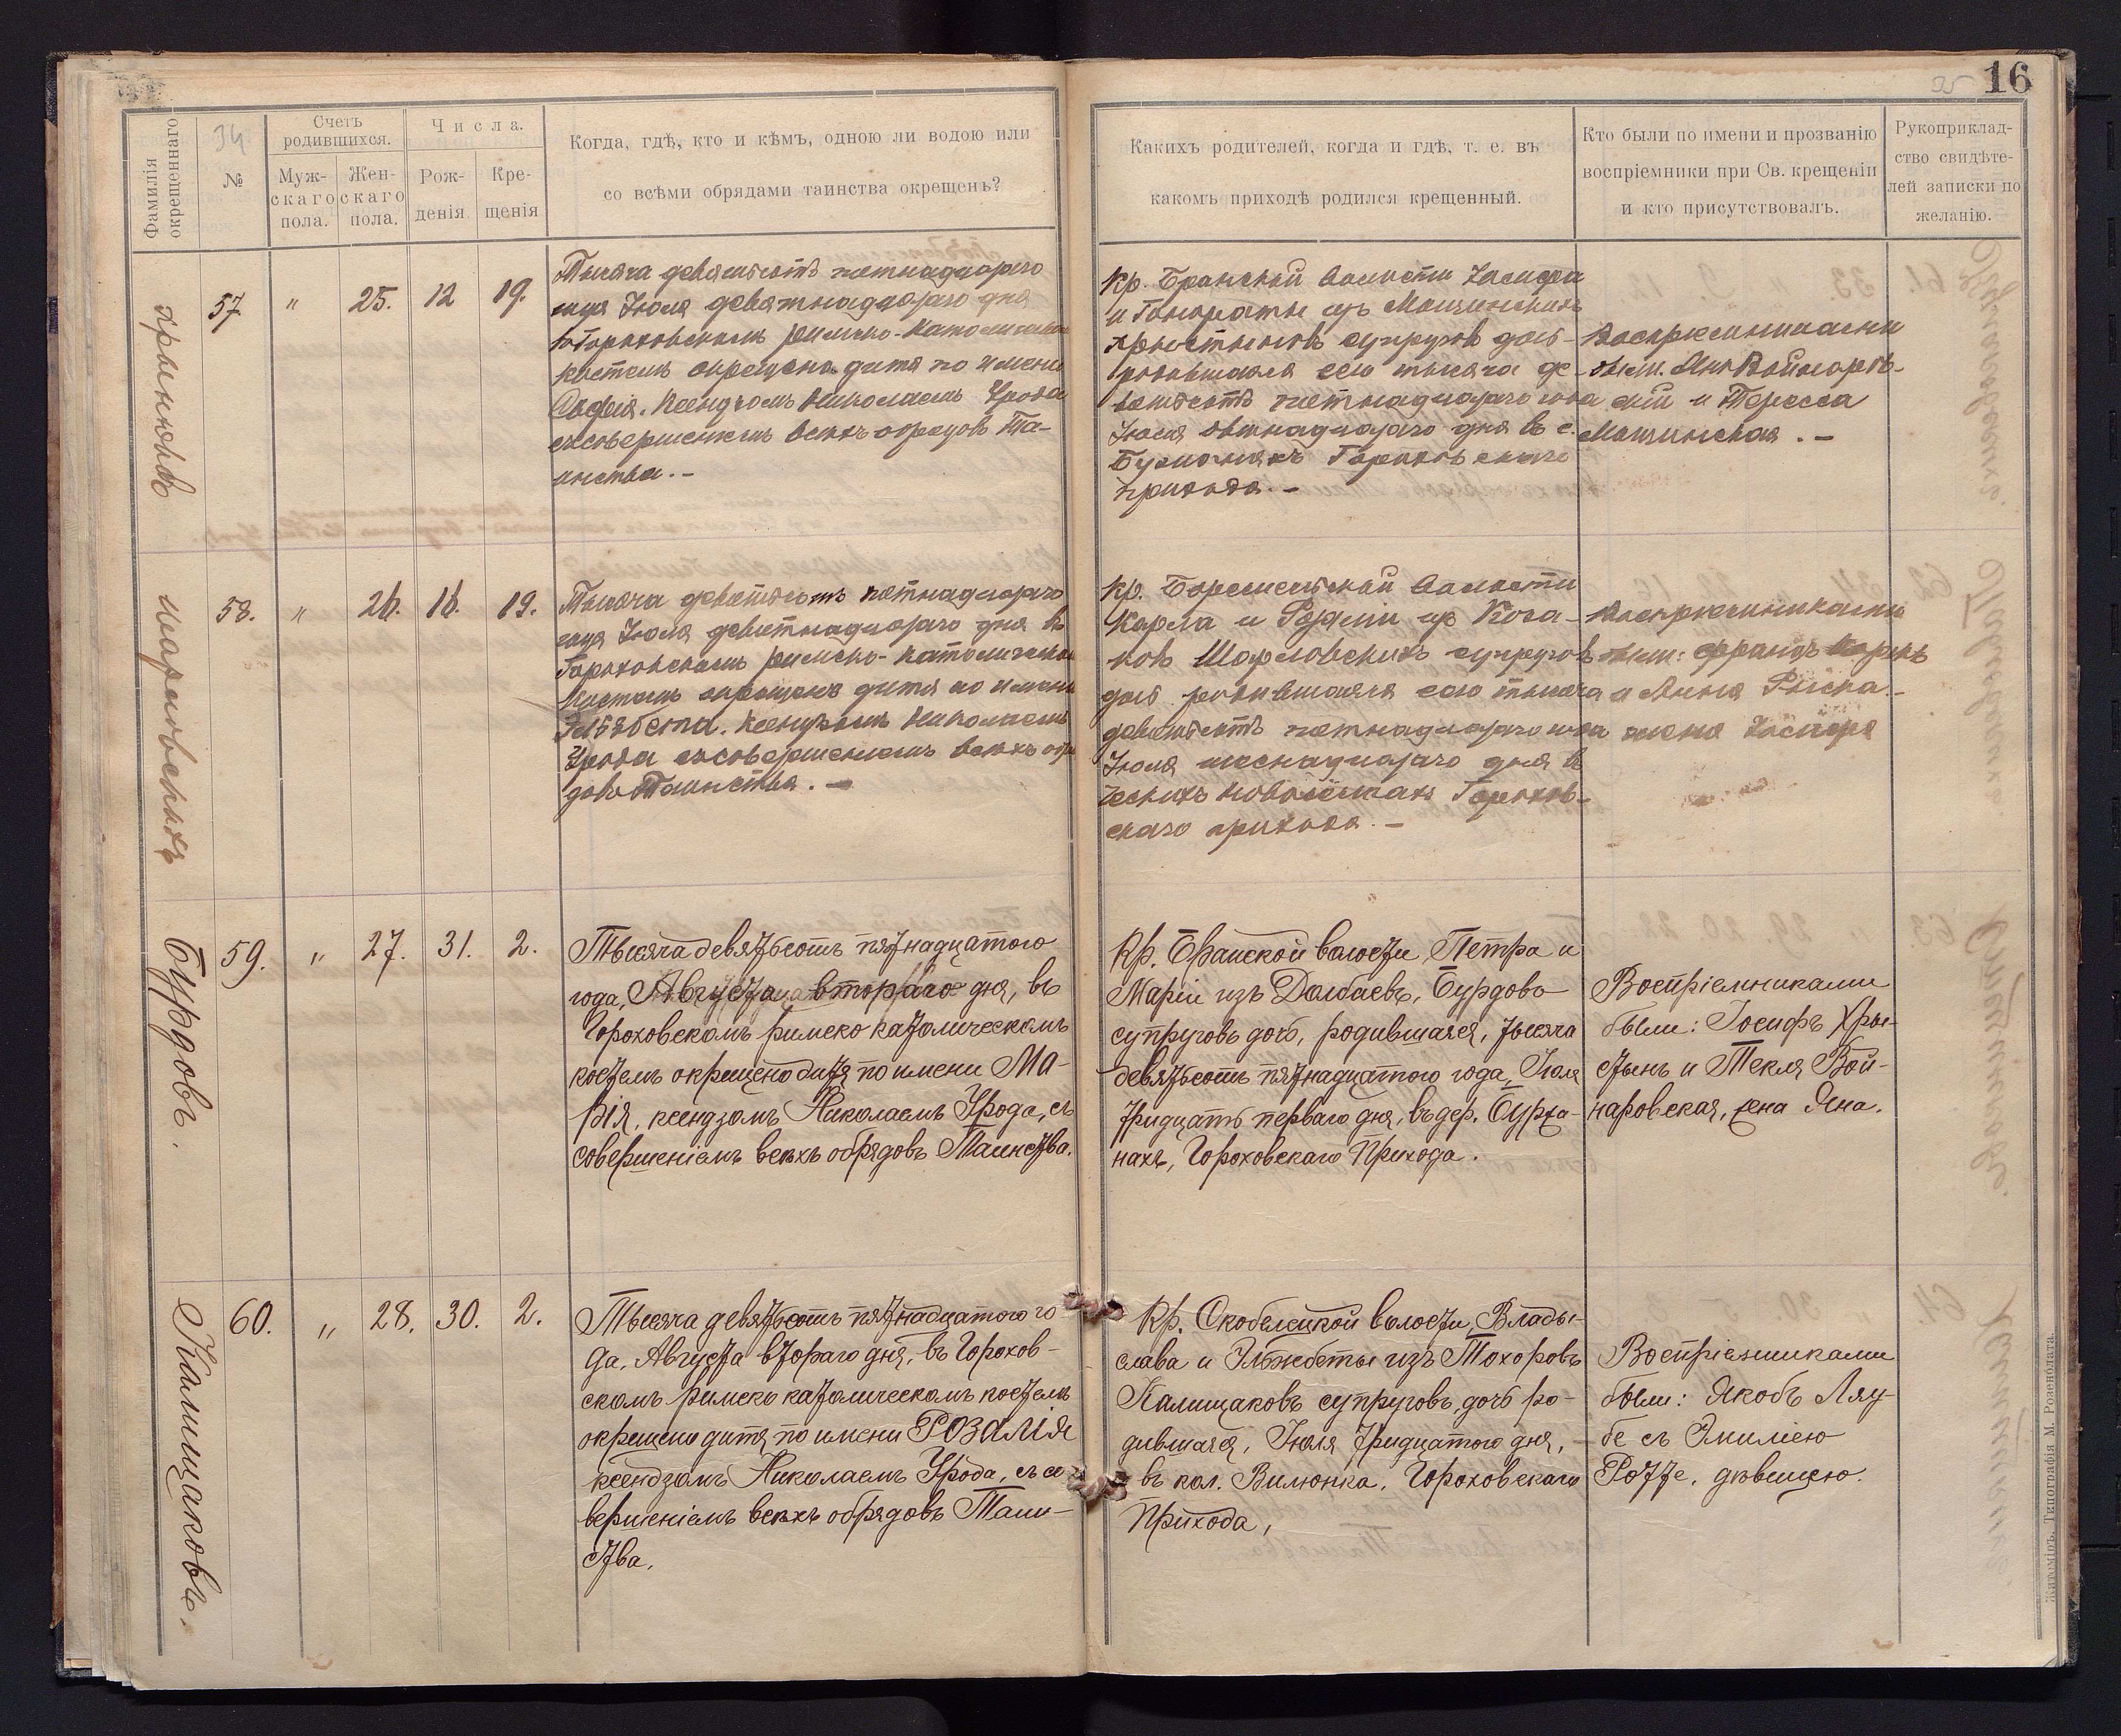 16
34
35
Фамилія окрещеннаго
№
Счетъ родившихся.
Муж-
скаго
пола.
Жен-
скаго
пола.
Числа.
Рож-
денія
Кре-
щенія
Когда, гдѣ, кто и кѣмъ, одною ли водою или
со всѣми обрядами таинства окрещенъ?
Какихъ родителей, когда и гдѣ, т. е. въ
какомъ приходѣ родился крещенный.
Кто были по имени и прозванію
воспріемники при Св. крещеніи
и кто присутствовалъ.
Рукоприклад-
ство свидѣте-
лей записки по
желанію.
57 " 25. 12 19.
Тысяча девятьсотъ пятнадцатаго
года Іюля девятнадцатаго дня
въ Гороховскомъ римско-католическомъ
костелѣ окрещено дитя по имени
Софія. Ксендзомъ Николаемъ Урода
съ совершеніемъ всѣхъ обрядовъ Та-
инства. –
Кр. Бранской волости
и Гонораты изъ Мошинскихъ
супруговъ дочь
родившаяся сего тысяча де-
вятьсотъ пятнадцатаго года
Іюля двѣнадцатаго дня въ с.
Бужанахъ Гороховскаго
прихода. –
Воспріемниками
были: Янъ Войнаров-
скій и Тересса
Мошинская. –
58. " 26. 16. 19.
Тысяча девятьсотъ пятнадцатаго
года Іюля девятнадцатаго дня въ
Гороховскомъ римско-католическомъ
костелѣ окрещено дитя по имени
Эльзбета. Ксендзомъ Николаемъ
Урода съ совершеніемъ всѣхъ обря
довъ Таинства. –
Кр. волости
Карла и изъ
супруговъ
дочь родившаяся сего тысяча
девятьсотъ пятнадцатаго года
Іюля шеснадцатаго дня въ
Чеснихъ Горохов-
скаго прихода. –
Воспріемниками
были: Францъ
и Анна
жена
Бурдовъ.
59. " 27. 31. 2.
Тысяча девятьсотъ пятнадцатого
года, Августа втораго дня, въ
Гороховскомъ римско католическомъ
костелѣ окрещено дитя по имени Ма-
рія, ксендзомъ Николаемъ Урода, съ
совершеніемъ всѣхъ обрядовъ Таинства.
Кр. Бранской волости, Петра и
Маріи изъ Долбаевъ, Бурдовъ
супруговъ дочь, родившаяся, тысяча
девятьсотъ пятнадцатого года, Іюля
тридцать перваго дня, въ дер. Бужа-
нахъ, Гороховскаго Прихода.
Воспріемниками
были: Іосифъ Хры-
стынъ и Текля Вой-
наровская, жена Яна.
Калищаковъ.
60. " 28. 30. 2.
Тысяча девятьсотъ пятнадцатого го-
да, Августа втораго дня, въ Горохов-
скомъ римско католическомъ костелѣ
окрещено дитя по имени Розалія
ксендзомъ Николаемъ Урода, съ со-
вершеніемъ всѣхъ обрядовъ Таин-
ства.
Кр. Скобелецкой волости, Влады-
слава и Эльжбеты изъ Тохоровъ
Калищаковъ супруговъ, дочь ро-
дившаяся, Іюля тридцатого дня,
въ кол. Вилюнка, Гороховскаго
Прихода,
Воспріемниками
были: Якобъ Ляу-
бе съ Эмиліею
Ротте, дѣвицею.
Житоміръ. Типографія М. Розенблата.